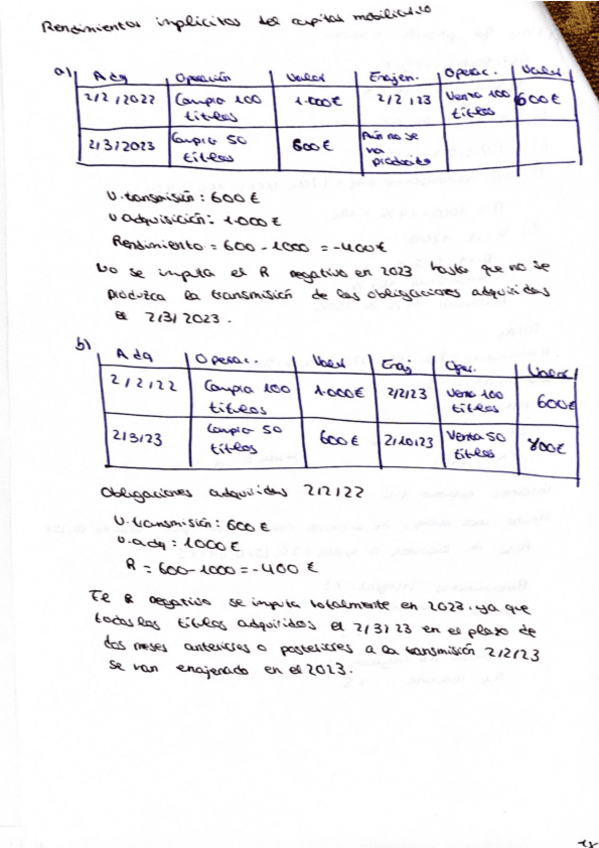 Rendimientos implícitos del capital mobiliario
a) Adq Operación Valor Enajen. Operac. Valor
2/2/2022 Compra 100 títulos 1.000€ 2/2/23 Venta 100 títulos 600€
2/3/2023 Compra 50 títulos 600€ Aún no se ha producido
V. transmisión: 600€
V adquisición: 1.000€
Rendimiento = 600 - 1000 = -400€
No se imputa el R negativo en 2023 hasta que no se
produzca la transmisión de las obligaciones adquiridas
el 2/3/2023.
b) Adq Operac. Valor Enaj Oper. Valor
2/2/22 Compra 100 títulos 1.000€ 2/2/23 Venta 100 títulos 600€
2/3/23 Compra 50 títulos 600€ 2/10/23 Venta 50 títulos 800€
Obligaciones adquiridas 2/2/22
V. transmisión: 600€
V. adq: 1000€
R = 600-1000 = -400€
El R negativo se imputa totalmente en 2023. ya que
todas los títulos adquiridos el 2/3/23 en el plazo de
dos meses anteriores o posteriores a la transmisión 2/2/23
se han enajenado en el 2023.